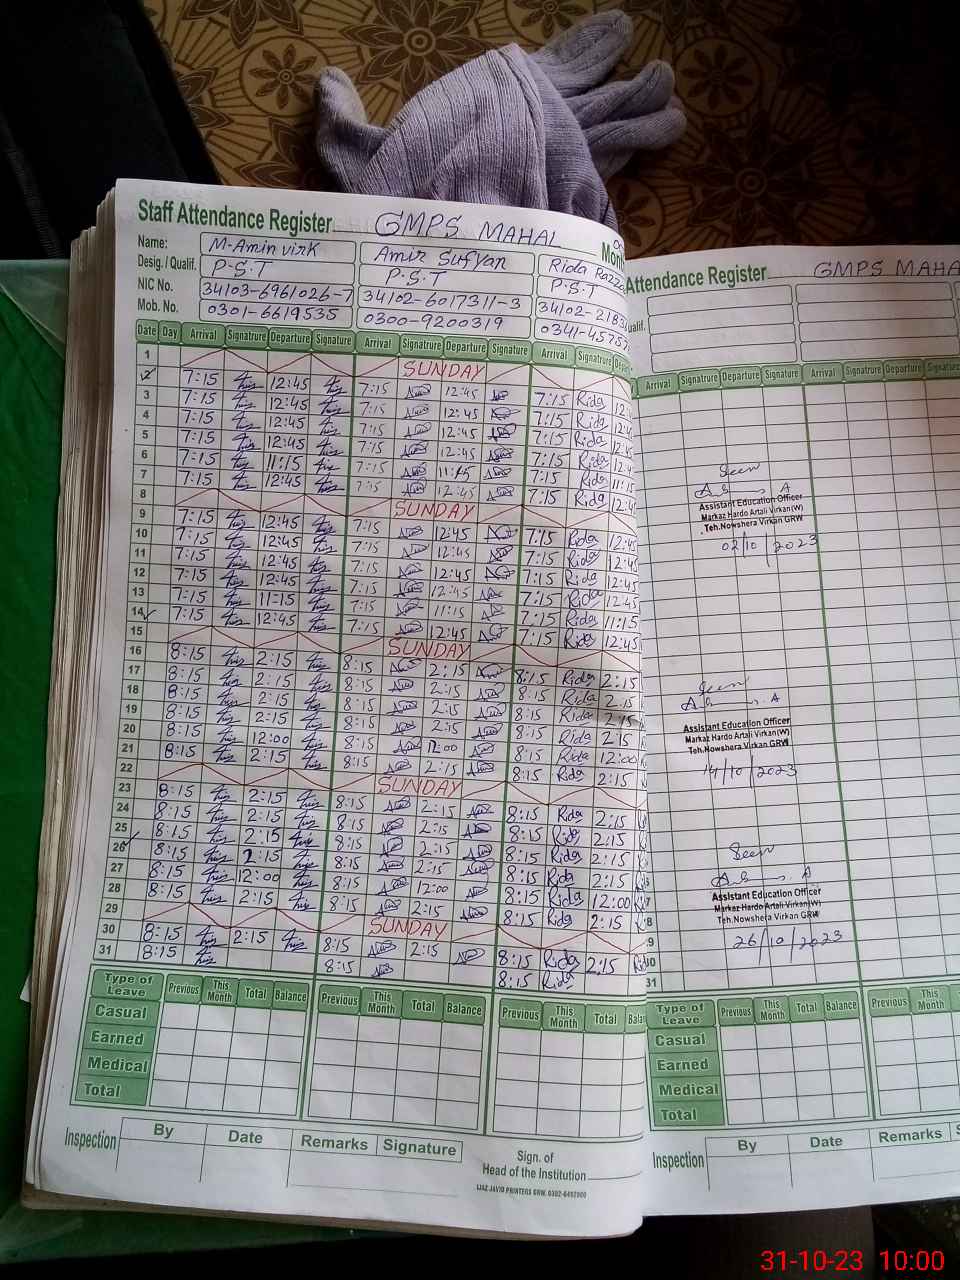 Staff Attendance Register GMPS MAHAL
Name: M-Amin virk Amir Sufyan Rida
Desig. / Qualif. P.S.T P.S.T P.S.T
NIC No. 34103-6961026-7 34102-6017311-3 34102-2183
Mob. No. 0301-6619535 0300-9200319 0341-4575
Date Day Arrival Signatrure Departure Signature Arrival Signatrure Departure Signature Arrival Signatrure
1 SUNDAY
2 7:15 12:45 7:15 12:45 7:15 Rida
3 7:15 12:45 7:15 12:45 7:15 Rida
4 7:15 12:45 7:15 12:45 7:15 Rida
5 7:15 12:45 7:15 12:45 7:15 Rida
6 7:15 11:15 7:15 11:15 7:15 Rida 11:15
7 7:15 12:45 7:15 12:45 7:15 Rida 12:45
8 SUNDAY
9 7:15 12:45 7:15 12:45 7:15 Rida 12:45
10 7:15 12:45 7:15 12:45 7:15 Rida 12:45
11 7:15 12:45 7:15 12:45 7:15 Rida 12:45
12 7:15 12:45 7:15 12:45 7:15 Rida 12:45
13 7:15 11-15 7:15 11:15 7:15 Rida 11:15
14 7:15 12:45 7:15 12:45 7:15 Rida 12:45
15 SUNDAY
16 8:15 2:15 8:15 2:15 8:15 Rida 2:15
17 8:15 2:15 8:15 2:15 8:15 Rida 2:15
18 8:15 2:15 8:15 2:15 8:15 Rida 2:15
19 8:15 2:15 8:15 2:15 8:15 Rida 2:15
20 8:15 12:00 8:15 12:00 8:15 Rida 12:00
21 8:15 2:15 8:15 2:15 8:15 Rida 2:15
22 SUNDAY
23 8:15 2:15 8:15 2:15 8:15 Rida 2:15
24 8:15 2:15 8:15 2:15 8:15 Rida 2:15
25 8:15 2:15 8:15 2:15 8:15 Rida 2:15
26 8:15 2:15 8:15 2:15 8:15 Rida 2:15
27 8:15 12:00 8:15 12:00 8:15 Rida 12:00
28 8:15 2:15 8:15 2:15 8:15 Rida 2:15
29 SUNDAY
30 8:15 2:15 8:15 2:15 8:15 Rida 2:15
31 8:15 8:15 8:15 Rida
Type of Leave Previous This Month Total Balance Previous This Month Total Balance Previous This Month Total
Casual
Earned
Medical
Total
Inspection By Date Remarks Signature
Sign. of
Head of the Institution
IJAZ JAVID PRINTERS GRW. 0302-6492900
Attendance Register GMPS MAHA
Arrival Signatrure Departure Signature Arrival Signatrure Departure
Seen
Assistant Education Officer
Markaz Hardo Artali Virkan(W)
Teh.Nowshera Virkan GRW
02/10/2023
Seen
Assistant Education Officer
Markaz Hardo Artali Virkan(W)
Teh.Nowshera Virkan GRW
14/10/2023
Seen
Assistant Education Officer
Markaz Hardo Artali Virkan(W)
Teh.Nowshera Virkan GRW
26/10/2023
31
Type of Leave Previous This Month Total Balance Previous This Month
Casual
Earned
Medical
Total
Inspection By Date Remarks
31-10-23 10:00